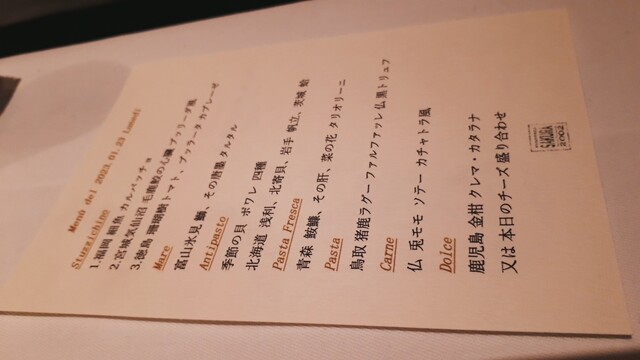 Menù del 2023.01.23 (Lunedì)
Stuzzichino
1.福岡 鞘魚 カルパッチョ
2.宮城気仙沼 毛鹿鮫の心臓 ブッリーダ風
3.徳島 珊瑚樹トマト、ブッラータ カプレーゼ
Mare
富山氷見 鰤、その唐墨 タルタル
Antipasto
季節の貝 ポワレ 四種
北海道 浅利、北寄貝、岩手 帆立、茨城 蛤
Pasta Fresca
青森 鮟鱇、その肝、菜の花 タリオリーニ
Pasta
鳥取 猪鹿ラグー ファルファッレ 仏 黒トリュフ
Carne
仏 兎モモ ソテー カチャトラ風
Dolce
鹿児島 金柑 クレマ・カタラナ
又は 本日のチーズ 盛り合わせ
SAKURA
2002